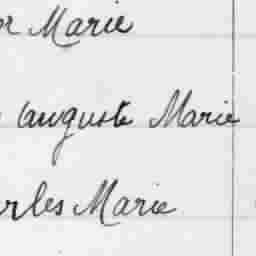 or Marie
auguste Marie
arles Marie